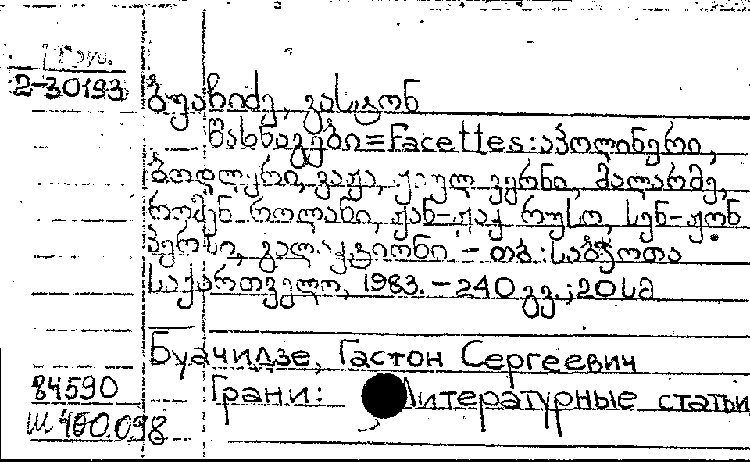 2-30193
ბუაჩიძე, გასტონ
წახნაგები=Facettes: აპოლინერი,
ბოდლერი, ვაჟა, ჟიულ ვერნი, მალარმე,
რომენ როლანი, ჟან-ჟაკ რუსო, სენ-ჟონ
პერსი, გალაკტიონი. - თბ.: საბჭოთა
საქართველო, 1983. - 240 გვ.; 20 სმ
Буачидзе, Гастон Сергеевич
84590 Грани: Литературные статьи
Ш 400.098